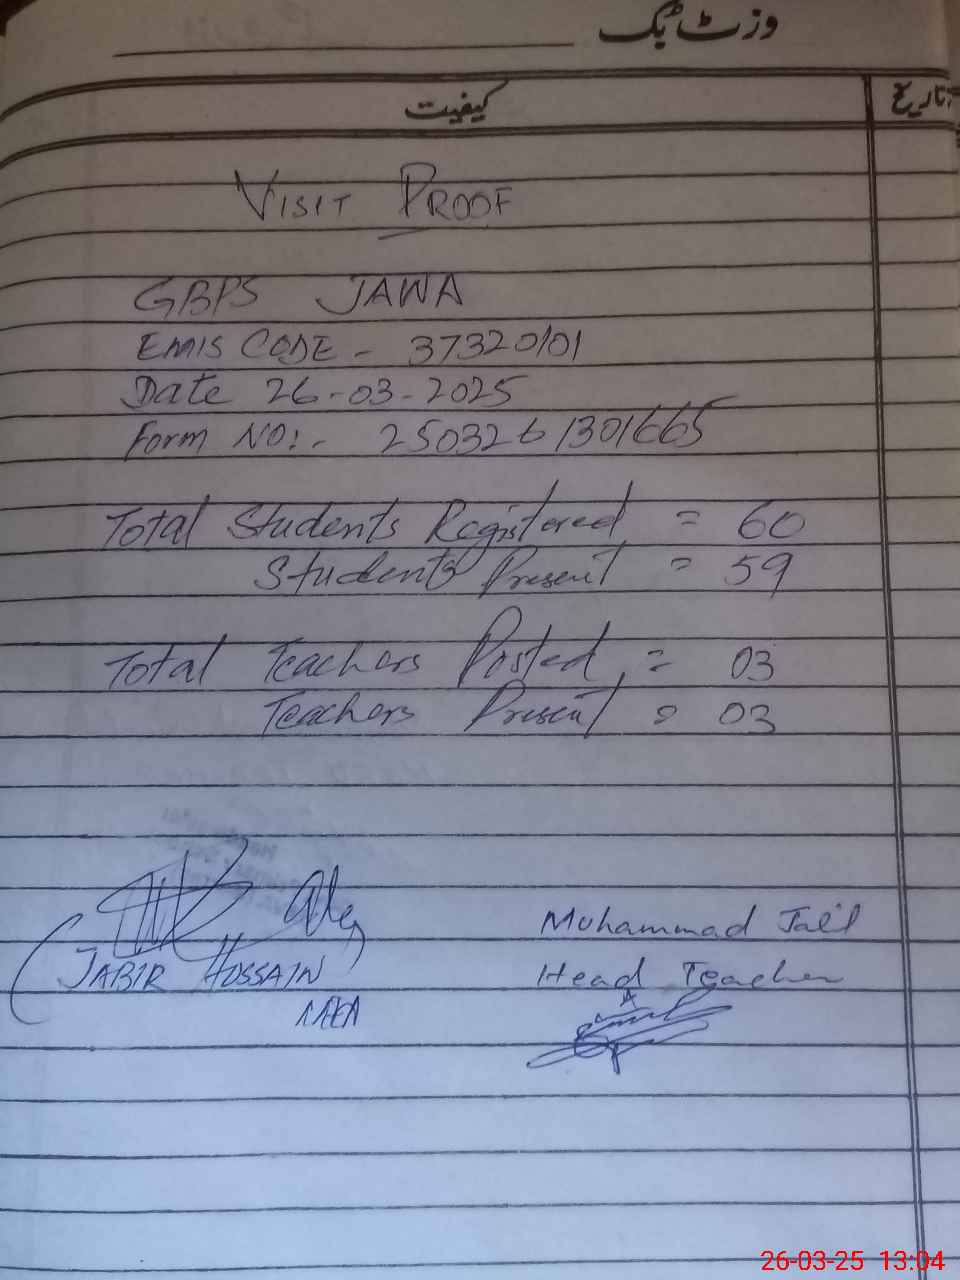 وزٹ بک
کیفیت
تاریخ
VISIT PROOF
GBPS JAWA
EMIS CODE - 37320101
Date 26-03-2025
Form NO:- 2503261301665
Total Students Registered = 60
Students Present = 59
Total Teachers Posted = 03
Teachers Present = 03
Muhammad Jalil
(JABIR HOSSAIN)
Head Teacher
26-03-25 13:04